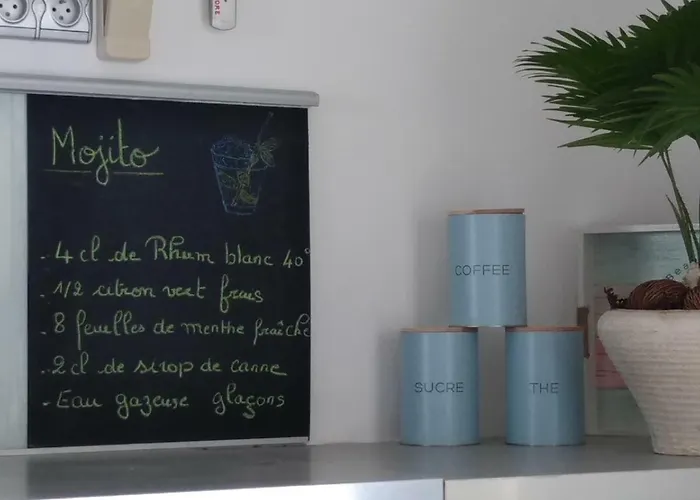 Mojito
- 4 cl de Rhum blanc 40°
- 1/2 citron vert frais
- 8 feuilles de menthe fraîche
- 2 cl de sirop de canne
- Eau gazeuse glaçons
COFFEE
SUCRE
THE